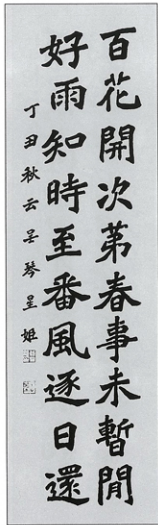 百花開次第春事未暫閒
好雨知時至番風逐日還
丁丑秋云
琴呈姬